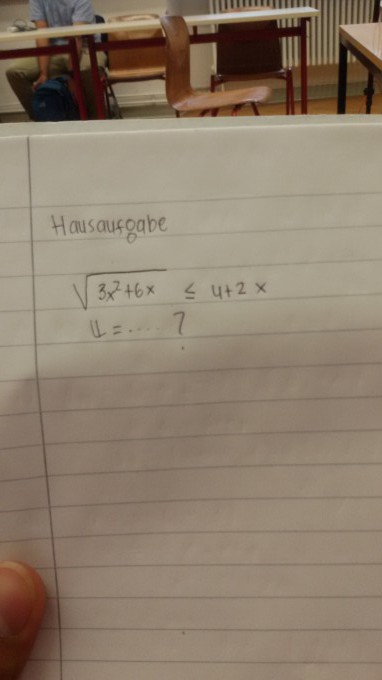 Hausaufgabe
√(3x²+6x) ≤ 4+2x
𝕃 = .... ?